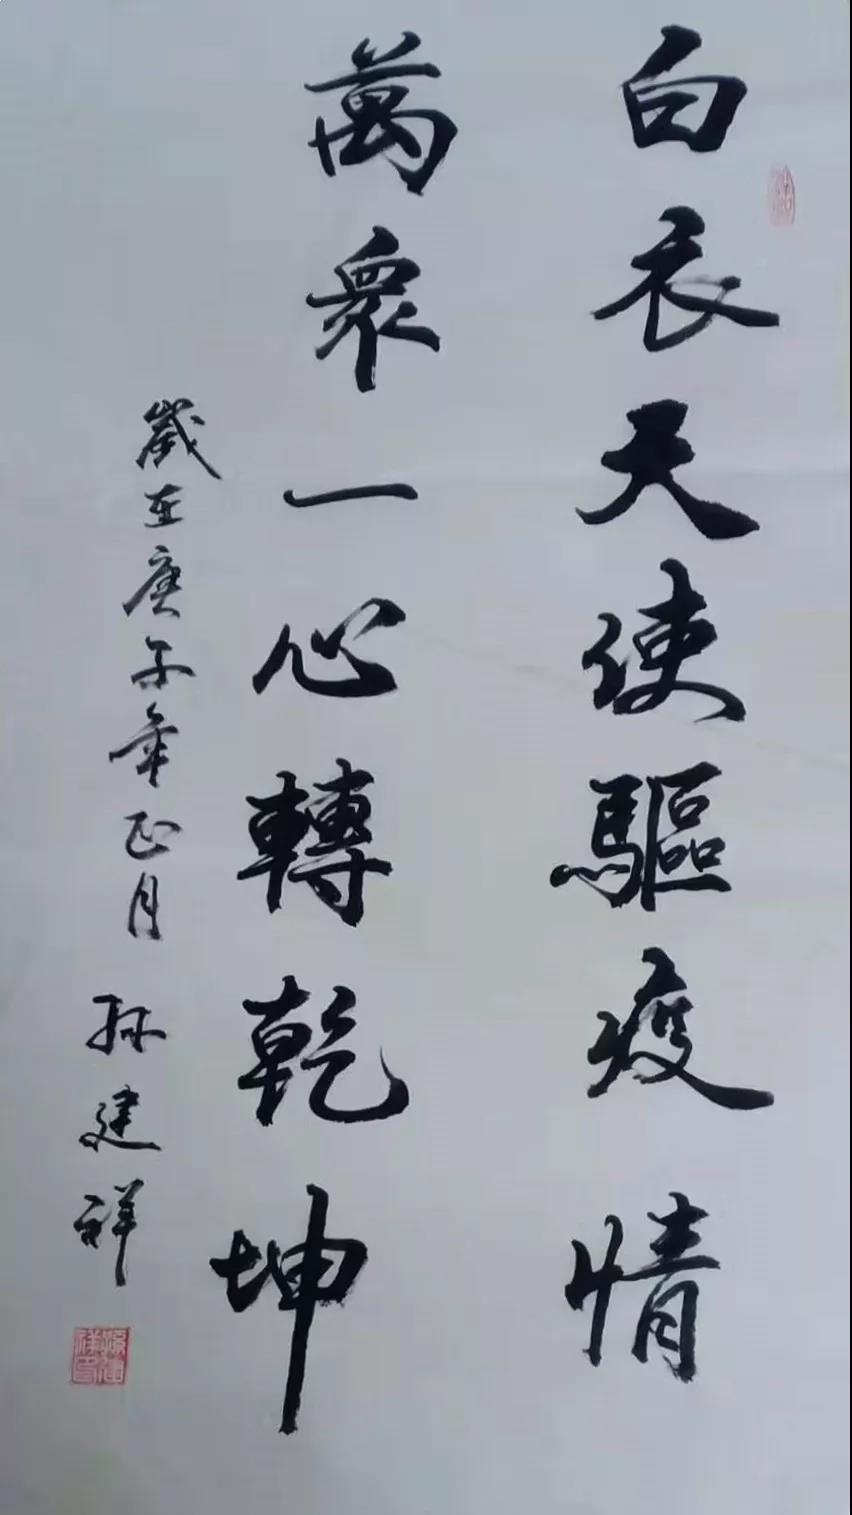 白衣天使驅疫情
萬衆一心轉乾坤
歲在庚子年正月
孙建祥